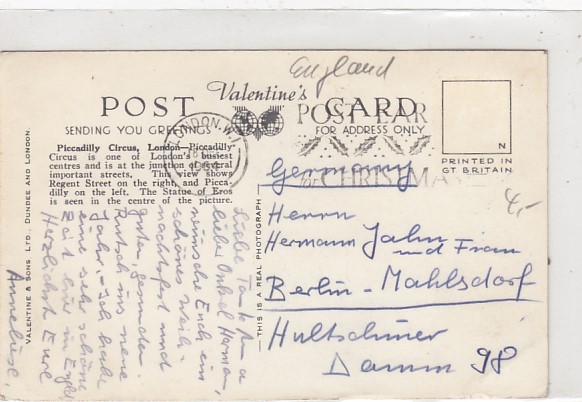 England
Valentine's
POST CARD
SENDING YOU GREETINGS
FOR ADDRESS ONLY
Piccadilly Circus, London—Piccadilly
Circus is one of London's busiest
centres and is at the junction of several
important streets. This view shows
Regent Street on the right, and Picca-
dilly on the left. The Statue of Eros
is seen in the centre of the picture.
LONDON. W.1
POST EARLY
for CHRISTMAS
N
PRINTED IN
GT BRITAIN
4,-
VALENTINE & SONS LTD., DUNDEE AND LONDON.
THIS IS A REAL PHOTOGRAPH
Liebe Tante
lieber Onkel Herman,
wünsche Euch ein
schönes Weih-
nachtsfest und
guten, gesunden
Rutsch ins neue
Jahr. Ich habe
eine sehr schöne
Zeit hier in Engld
Herzlichst Eure
Anneliese.
Germany
Herrn
Hermann Jahn
und Frau
Berlin - Mahlsdorf
Hultschiner
Damm 98